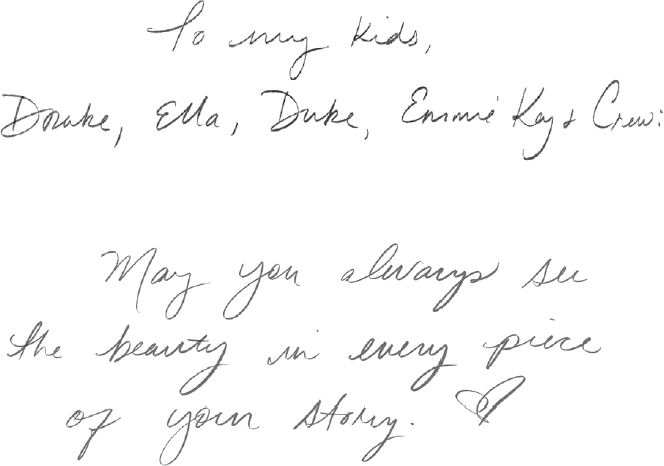 To my kids,
Drake, Ella, Duke, Emmie Kay & Crew:
May you always see
the beauty in every piece
of your story. ♡